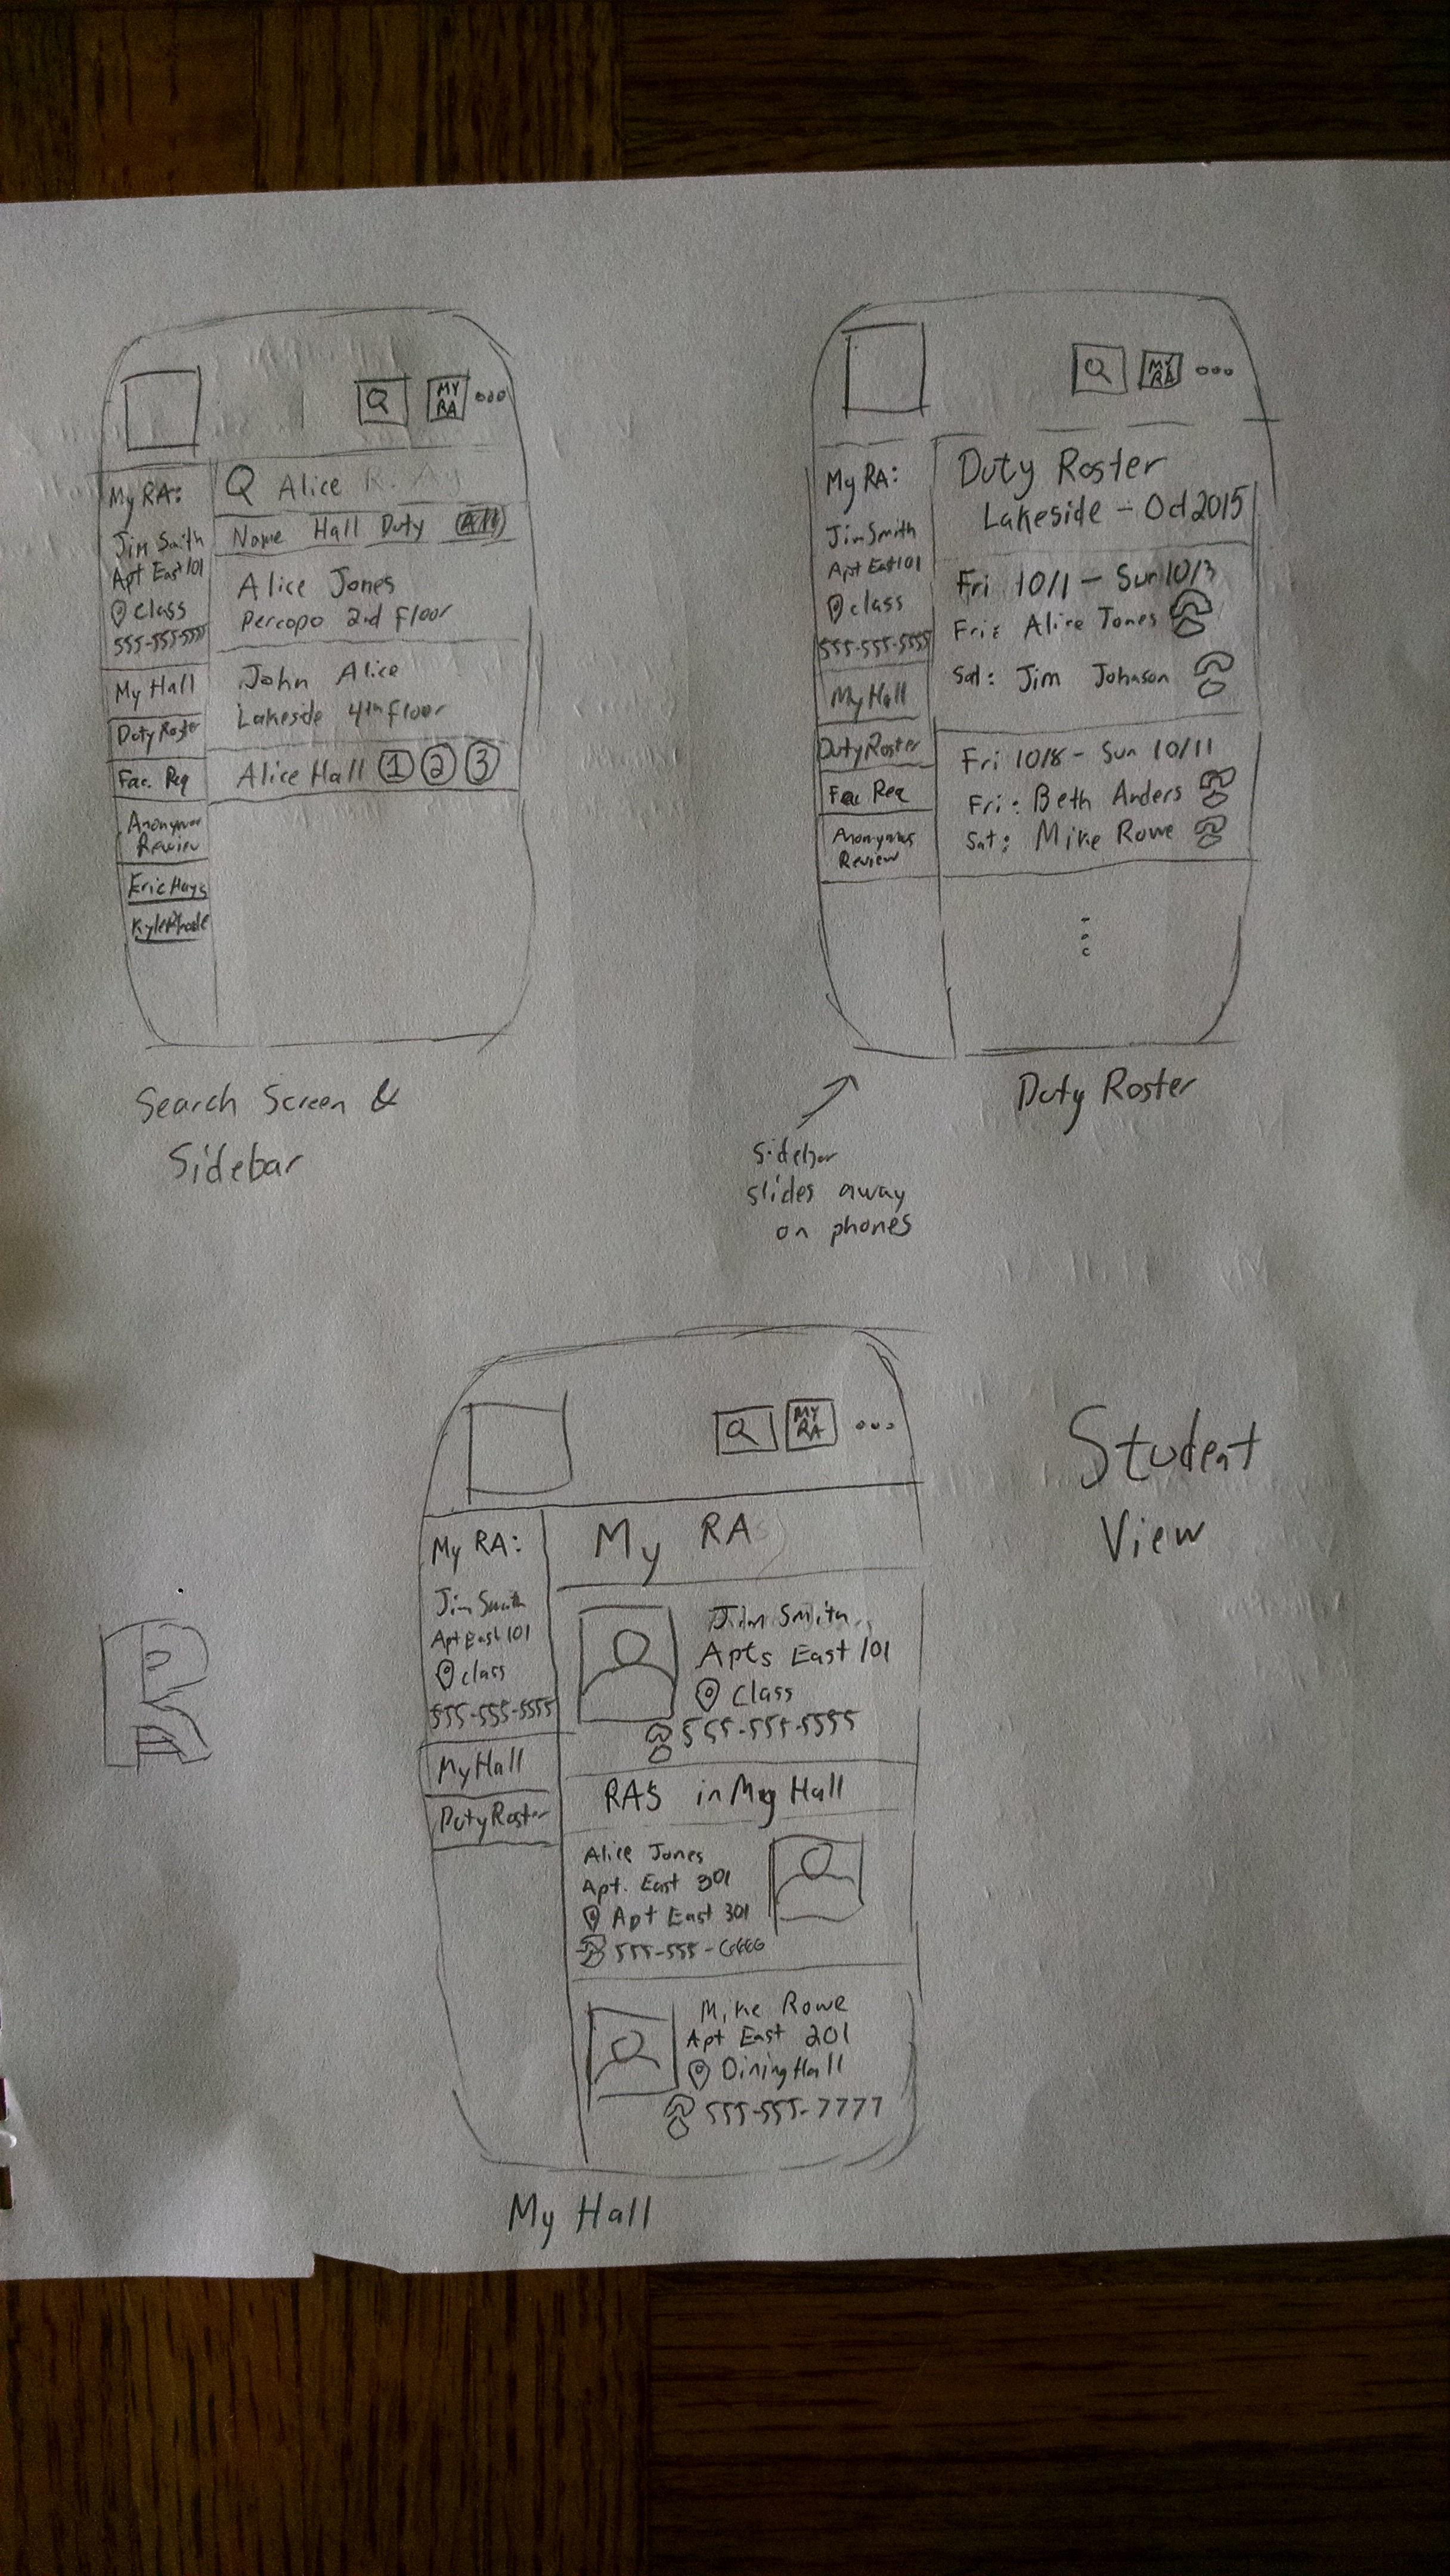 MY
RA
My RA:
Jim Smith
Apt East 101
class
555-555-5555
My Hall
Duty Roster
Fac. Req
Anonymous
Review
Eric Hays
Alice
Name Hall Duty All
Alice Jones
Percopo 2nd Floor
John Alice
Lakeside 4th floor
Alice Hall 1 2 3
Search Screen &
Sidebar
MY
RA
My RA:
Jim Smith
Apt East 101
class
555-555-5555
My Hall
Duty Roster
Fac Req
Anonymous
Review
Duty Roster
Lakeside - Oct 2015
Fri 10/1 - Sun 10/3
Fri: Alice Jones
Sat: Jim Johnson
Fri 10/8 - Sun 10/11
Fri: Beth Anders
Sat: Mike Rowe
Duty Roster
Sidebar
slides away
on phones
MY
RA
My RA:
Jim Smith
Apt East 101
class
555-555-5555
My Hall
Duty Roster
My RA
Jim Smith
Apts East 101
Class
555-555-5555
RAs in My Hall
Alice Jones
Apt. East 301
Apt East 301
555-555-6666
Mike Rowe
Apt East 201
Dining Hall
555-555-7777
My Hall
Student
View
R